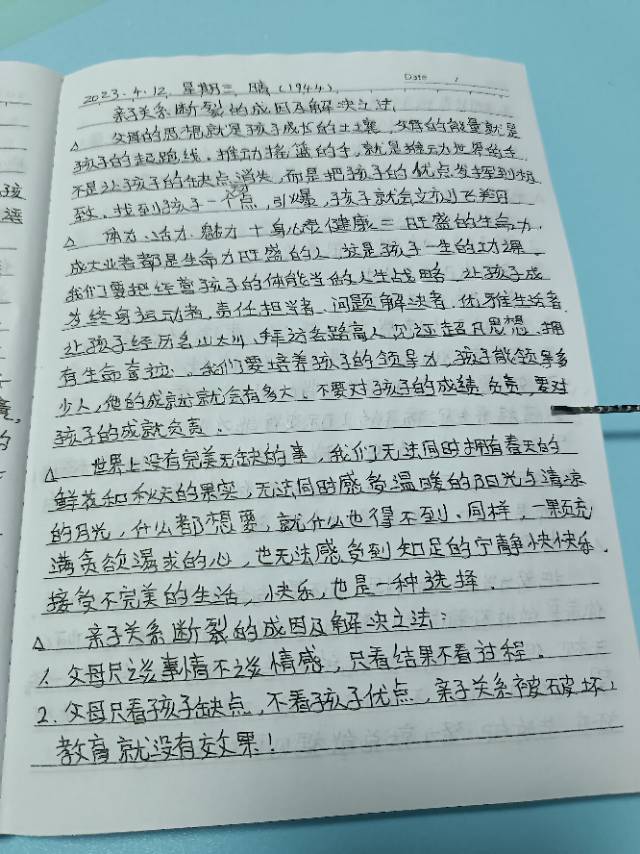 2023.4.12 星期三 晴 (1944)
Date /
亲子关系断裂的成因及解决之法
△ 父母的思想就是孩子成长的土壤,父母的能量就是
孩子的起跑线。推动摇篮的手,就是推动世界的手
不是让孩子的缺点消失,而是把孩子的优点发挥到极
致,找到孩子一个点,引爆,孩子就会立刻飞
△ 体力、活力、魅力+身心灵健康=旺盛的生命力,
成大业者都是生命力旺盛的人,这是孩子一生的功课
我们要把经营孩子的体能当的人生战略,让孩子成
为终身运动者、责任担当者、问题解决者、优雅生活者
让孩子经历名山大川,拜访各路高人 超凡思想,拥
有生命 。我们要培养孩子的领导力,孩子能领导多
少人,他的成就就会有多大。不要对孩子的成绩负责,要对
孩子的成就负责。
△ 世界上没有完美无缺的事,我们无法同时拥有春天的
鲜花和秋天的果实,无法同时感受温暖的阳光与清凉
的月光,什么都想要,就什么也得不到。同样,一颗充
满贪欲渴求的心,也无法感受到知足的宁静快快乐。
接受不完美的生活,快乐,也是一种选择。
△ 亲子关系断裂的成因及解决之法:
1. 父母只谈事情不谈情感,只看结果不看过程。
2. 父母只看孩子缺点,不看孩子优点,亲子关系被破坏,
教育就没有效果!